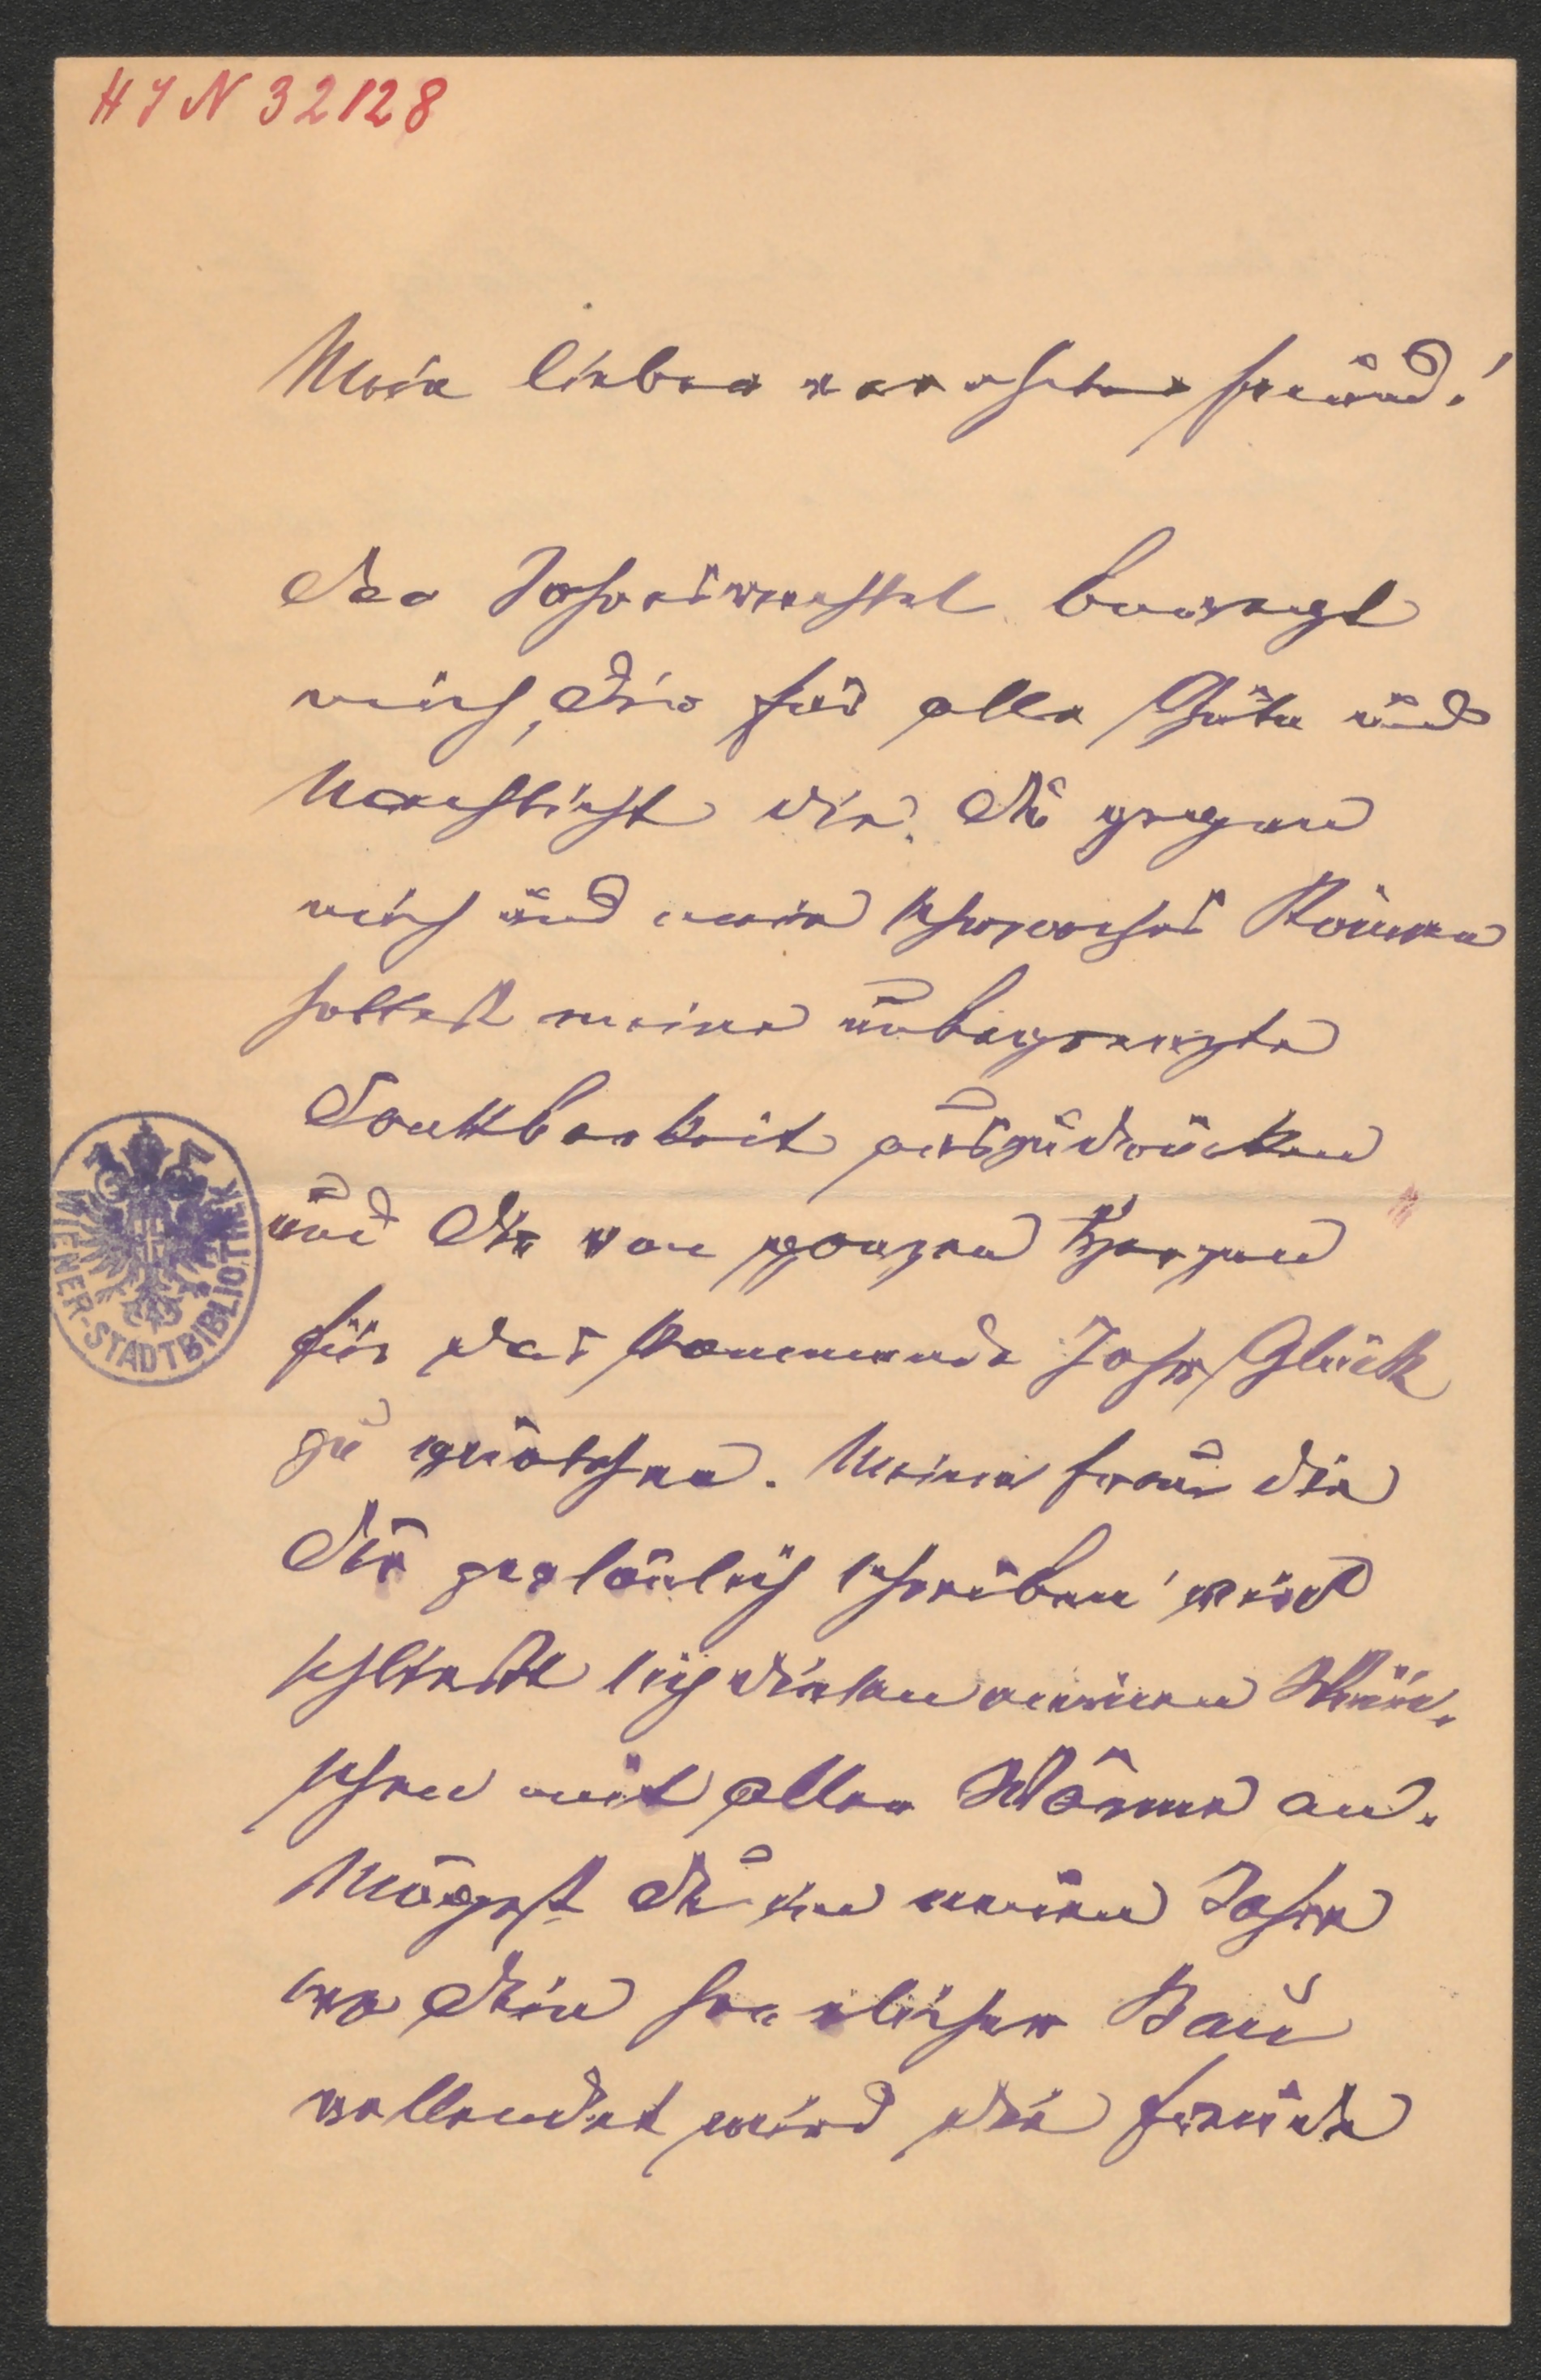 HIN 32128
Mein lieber verehrter Freund!
Der Jahreswechsel bewegt
mich, Dir für alle Güte und
Nachsicht die Du gegen
mich und mein schwaches Können
hattest meine unbegrenzte
Dankbarkeit auszudrücken
und Dir von ganzen Herzen
für das kommende Jahr Glück
zu wünschen. Meine Frau die
Dir persönlich schreiben wird
schließt sich diesen meinen Wün-
schen mit aller Wärme an.
Mögest Du im neuen Jahre
wo Dein herrlicher Bau
vollendet wird die Freude
WIENER-STADTBIBLIOTHEK